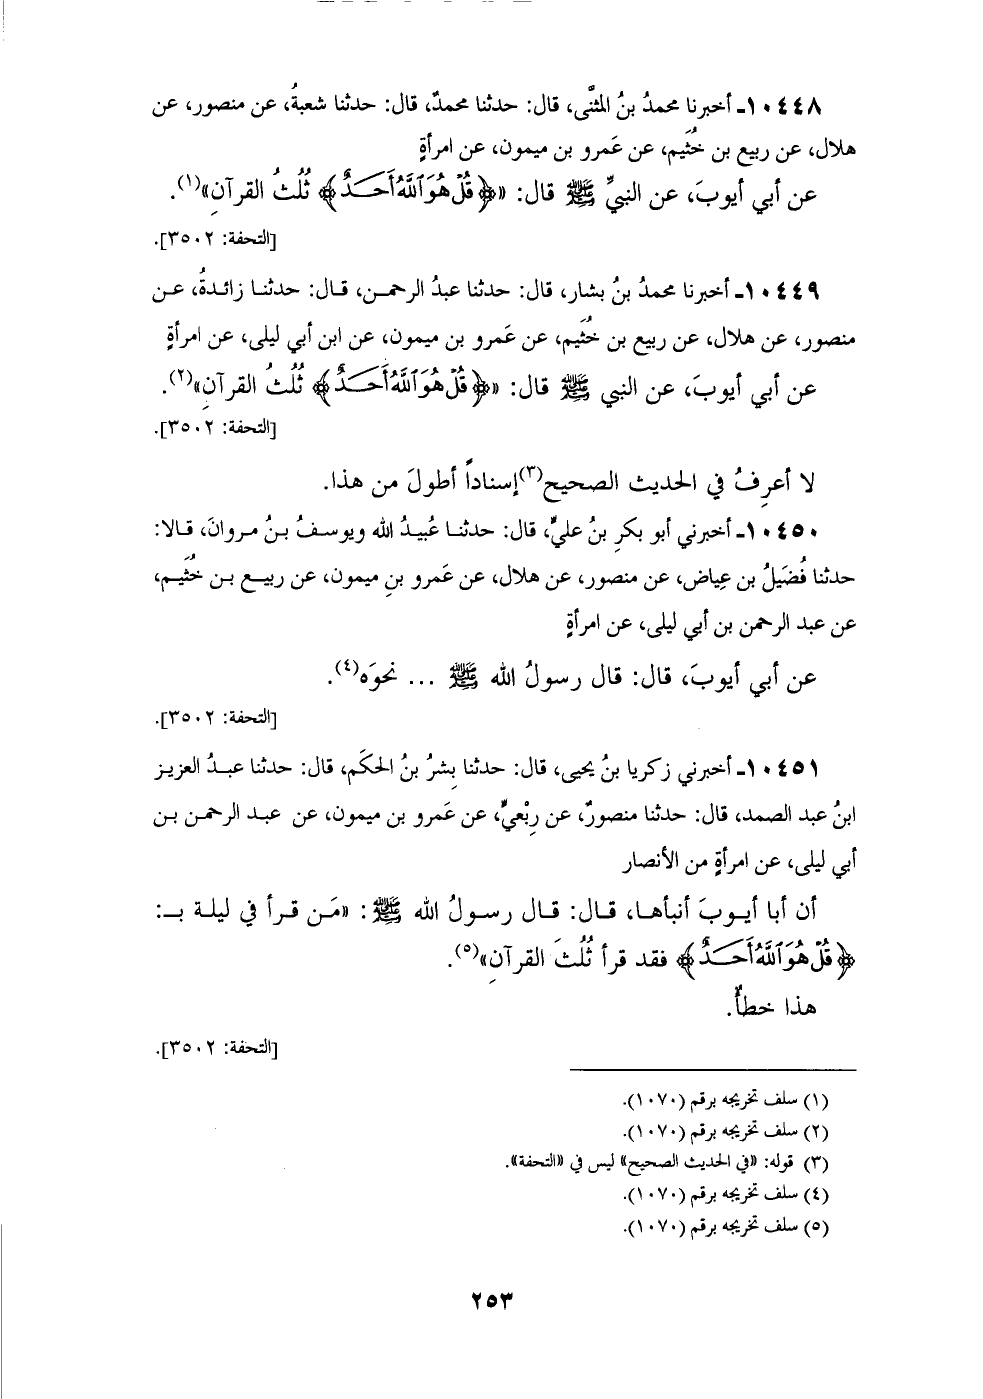 ١٠٤٤٨ـ أخبرنا محمدُ بنُ المثنَّى، قال: حدثنا محمدٌ، قال: حدثنا شعبةُ، عن منصور، عن
هلال، عن ربيع بن خُثَيم، عن عَمرو بن ميمون، عن امرأةٍ
عن أبي أيوبَ، عن النبيِّ ﷺ قال: «﴿قُلْ هُوَ ٱللَّهُ أَحَدٌ﴾ ثُلُثُ القرآنِ»(١).
[التحفة: ٣٥٠٢].
١٠٤٤٩ـ أخبرنا محمدُ بنُ بشار، قال: حدثنا عبدُ الرحمن، قال: حدثنا زائدةُ، عن
منصور، عن هلال، عن ربيع بن خُثَيم، عن عَمرو بن ميمون، عن ابن أبي ليلى، عن امرأةٍ
عن أبي أيوبَ، عن النبي ﷺ قال: «﴿قُلْ هُوَ ٱللَّهُ أَحَدٌ﴾ ثُلُثُ القرآنِ»(٢).
[التحفة: ٣٥٠٢].
لا أعرِفُ في الحديث الصحيح(٣)إسناداً أطولَ من هذا.
١٠٤٥٠ـ أخبرني أبو بكرِ بنُ عليٍّ، قال: حدثنا عُبيدُ الله ويوسفُ بنُ مروانَ، قالا:
حدثنا فُضَيلُ بن عِياض، عن منصور، عن هلال، عن عَمرو بنِ ميمون، عن ربيع بن خُثَيم،
عن عبد الرحمن بن أبي ليلى، عن امرأةٍ
عن أبي أيوبَ، قال: قال رسولُ الله ﷺ ... نحوَه(٤).
[التحفة: ٣٥٠٢].
١٠٤٥١ـ أخبرني زكريا بنُ يحيى، قال: حدثنا بِشرُ بنُ الحكَم، قال: حدثنا عبدُ العزيز
ابنُ عبد الصمد، قال: حدثنا منصورٌ، عن رِبْعيٍّ، عن عَمرو بن ميمون، عن عبد الرحمن بن
أبي ليلى، عن امرأةٍ من الأنصار
أن أبا أيوبَ أنبأها، قال: قال رسولُ الله ﷺ: «مَن قرأ في ليلة بـ:
﴿قُلْ هُوَ ٱللَّهُ أَحَدٌ﴾ فقد قرأ ثُلُثَ القرآنِ»(٥).
هذا خطأٌ.
[التحفة: ٣٥٠٢].
(١) سلف تخريجه برقم (١٠٧٠).
(٢) سلف تخريجه برقم (١٠٧٠).
(٣) قوله: «في الحديث الصحيح» ليس في «التحفة».
(٤) سلف تخريجه برقم (١٠٧٠).
(٥) سلف تخريجه برقم (١٠٧٠).
٢٥٣